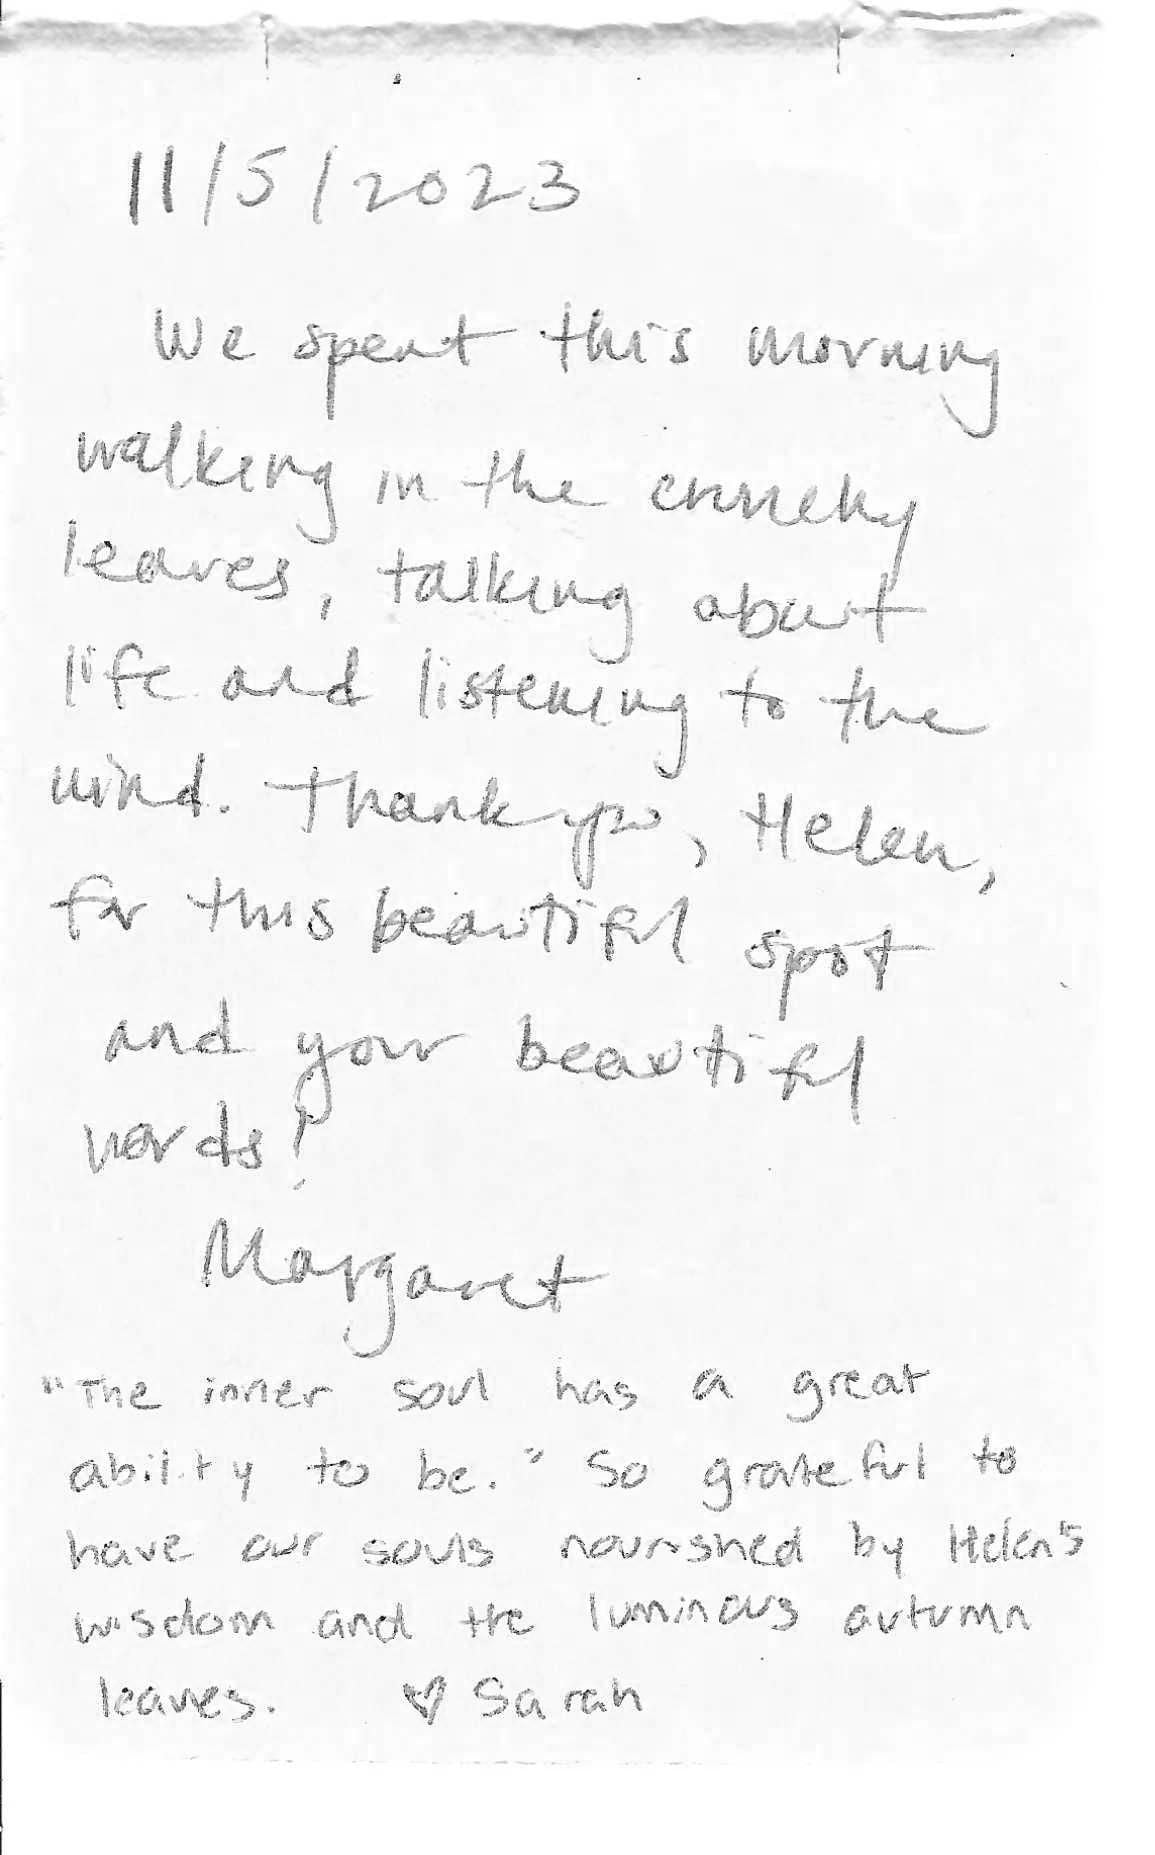 11/5/2023
We spent this morning
walking in the crunchy
leaves, talking about
life and listening to the
wind. Thank you, Helen,
for this beautiful spot
and your beautiful
words!
Margaret
"The inner soul has a great
ability to be." So grateful to
have our souls nourished by Helen's
wisdom and the luminous autumn
leaves. ♡ Sarah